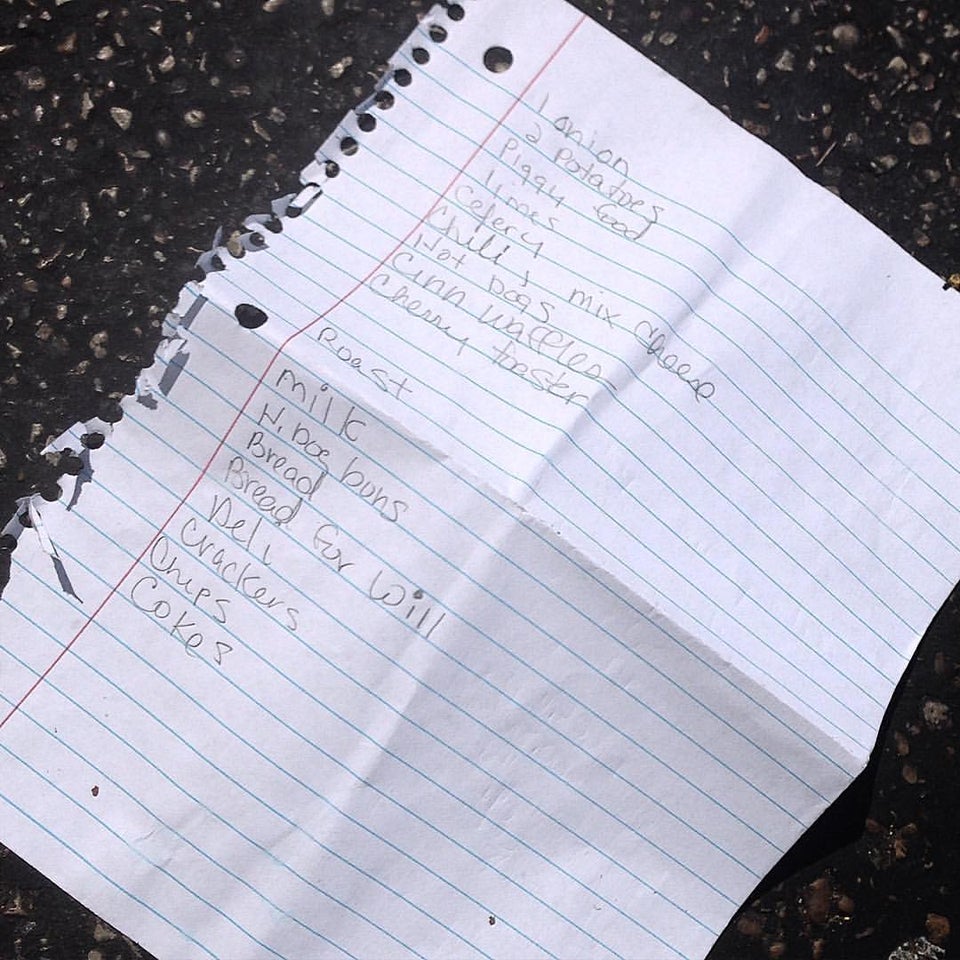 1 onion
2 Potatoes
Piggy food
limes
Celery
Chili + mix cheese
Hot Dogs
Cinn waffles
Cherry toaster
Roast
Milk
H. Dog buns
Bread
Bread for Will
Deli
Crackers
Chips
Cokes